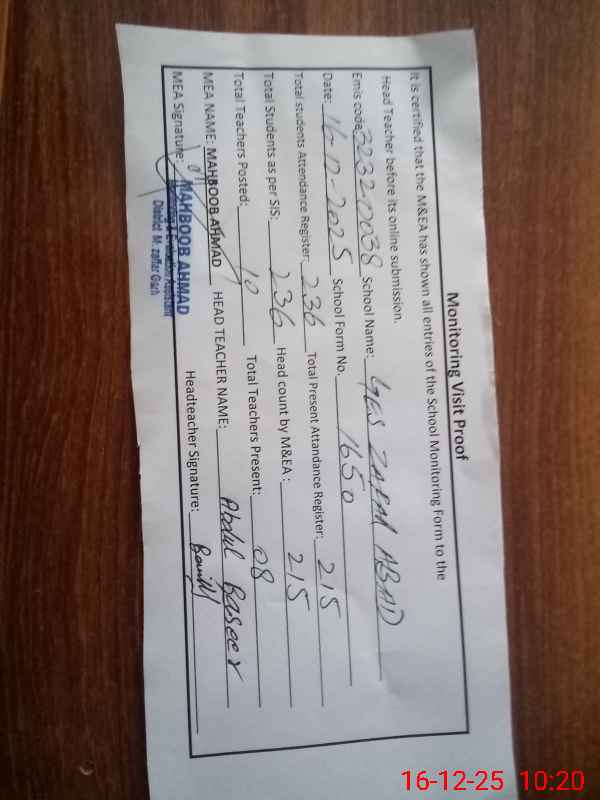 Monitoring Visit Proof
It is certified that the M&EA has shown all entries of the School Monitoring Form to the
Head Teacher before its online submission.
Emis code: 32320038 School Name: GES ZAFAR ABAD
Date: 16-12-2025 School Form No. 1650
Total students Attendance Register: 236 Total Present Attandance Register: 215
Total Students as per SIS: 236 Head count by M&EA : 215
Total Teachers Posted: 10 Total Teachers Present: 08
MEA NAME: MAHBOOB AHMAD HEAD TEACHER NAME: Abdul Baseer
MEA Signature: Headteacher Signature:
MAHBOOB AHMAD
Monitoring & Evaluation Assistant
District M. zaffar Garh
16-12-25 10:20